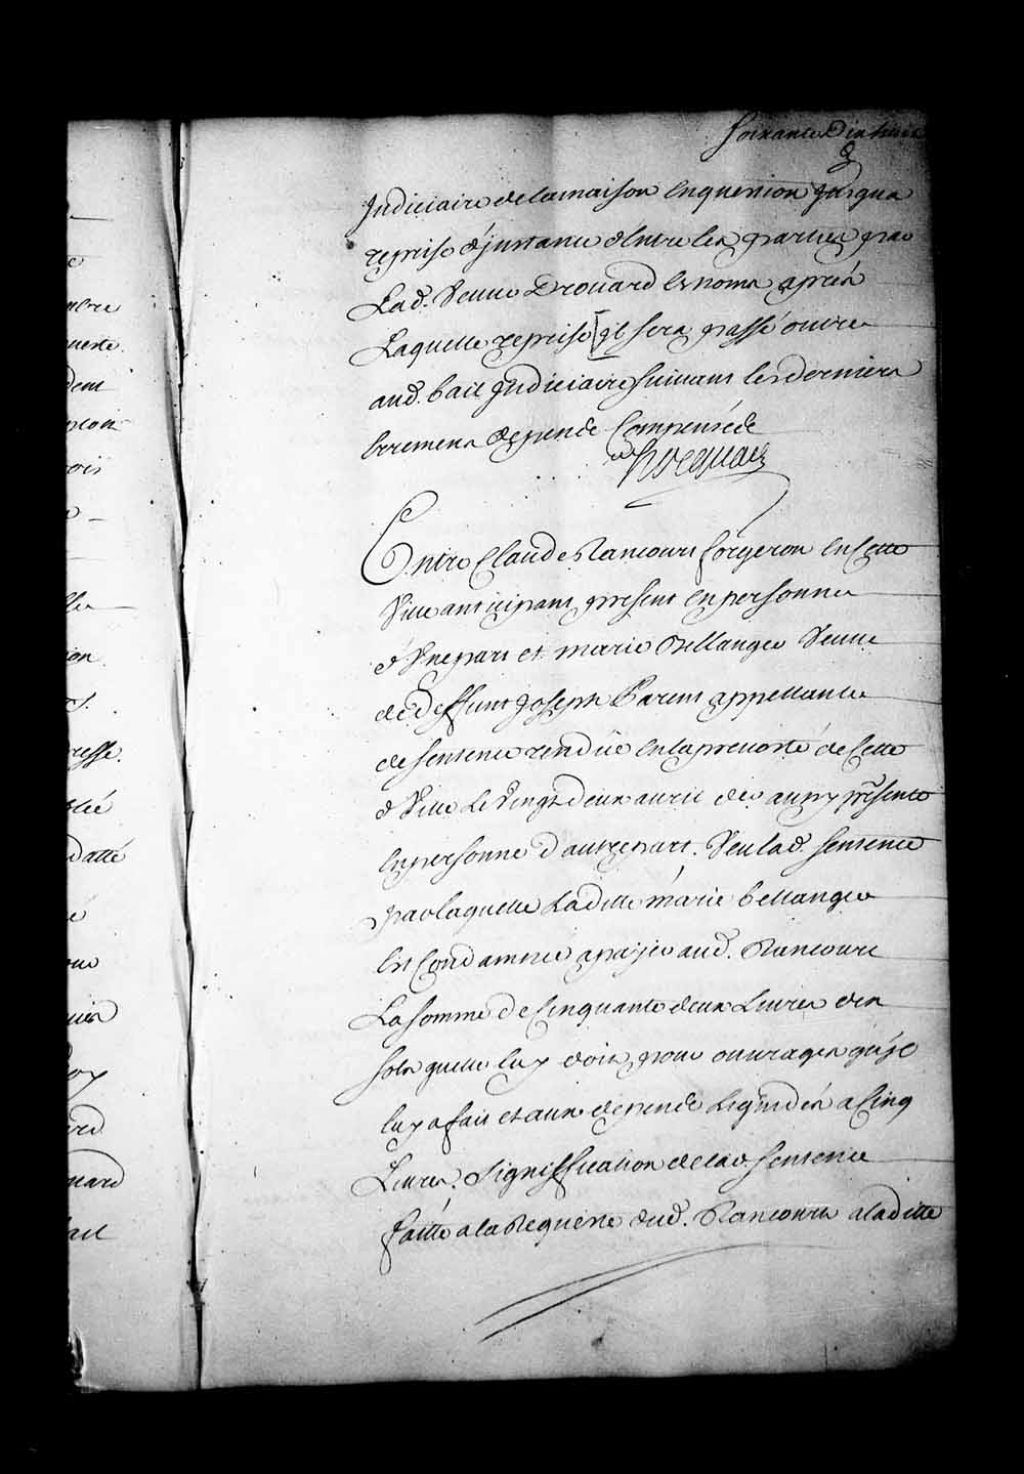 Soixante Dix huit
Judiciaire de la maison en question jusqua
reprise d'jnstance d'Entre les parties par
Lad. Veuve Drouard es noms apres
Laquelle reprise il sera passé outre
aud. bail Judiciaire suivant les derniers
erremens depends Compensés
hocquart
Entre Claude Rancourt forgeron en Cette
Ville anticipant present en personne
d'Vne part et marie Bellanger Veuve
de deffunt Joseph Parent appellante
de sentence rendüe en la prevosté de Cette
d Ville Le Vingt deux avril dernier presente
en personne d'autre part. Veu lad. sentence
par laquelle Ladite marie bellanger
Est Condamnée a payer aud. Rancourt
La somme de Cinquante deux Livres dix
sols quelle luy doit pour ouvrages qu'jl
luy a fait et aux depends Liquidés a Cinq
Livres. Signiffication de lad. sentence
faitte a la Requeste dud. Rancourt a laditte
ambre
ueste
dent
ois
on
resse.
datté
é
oy
nard